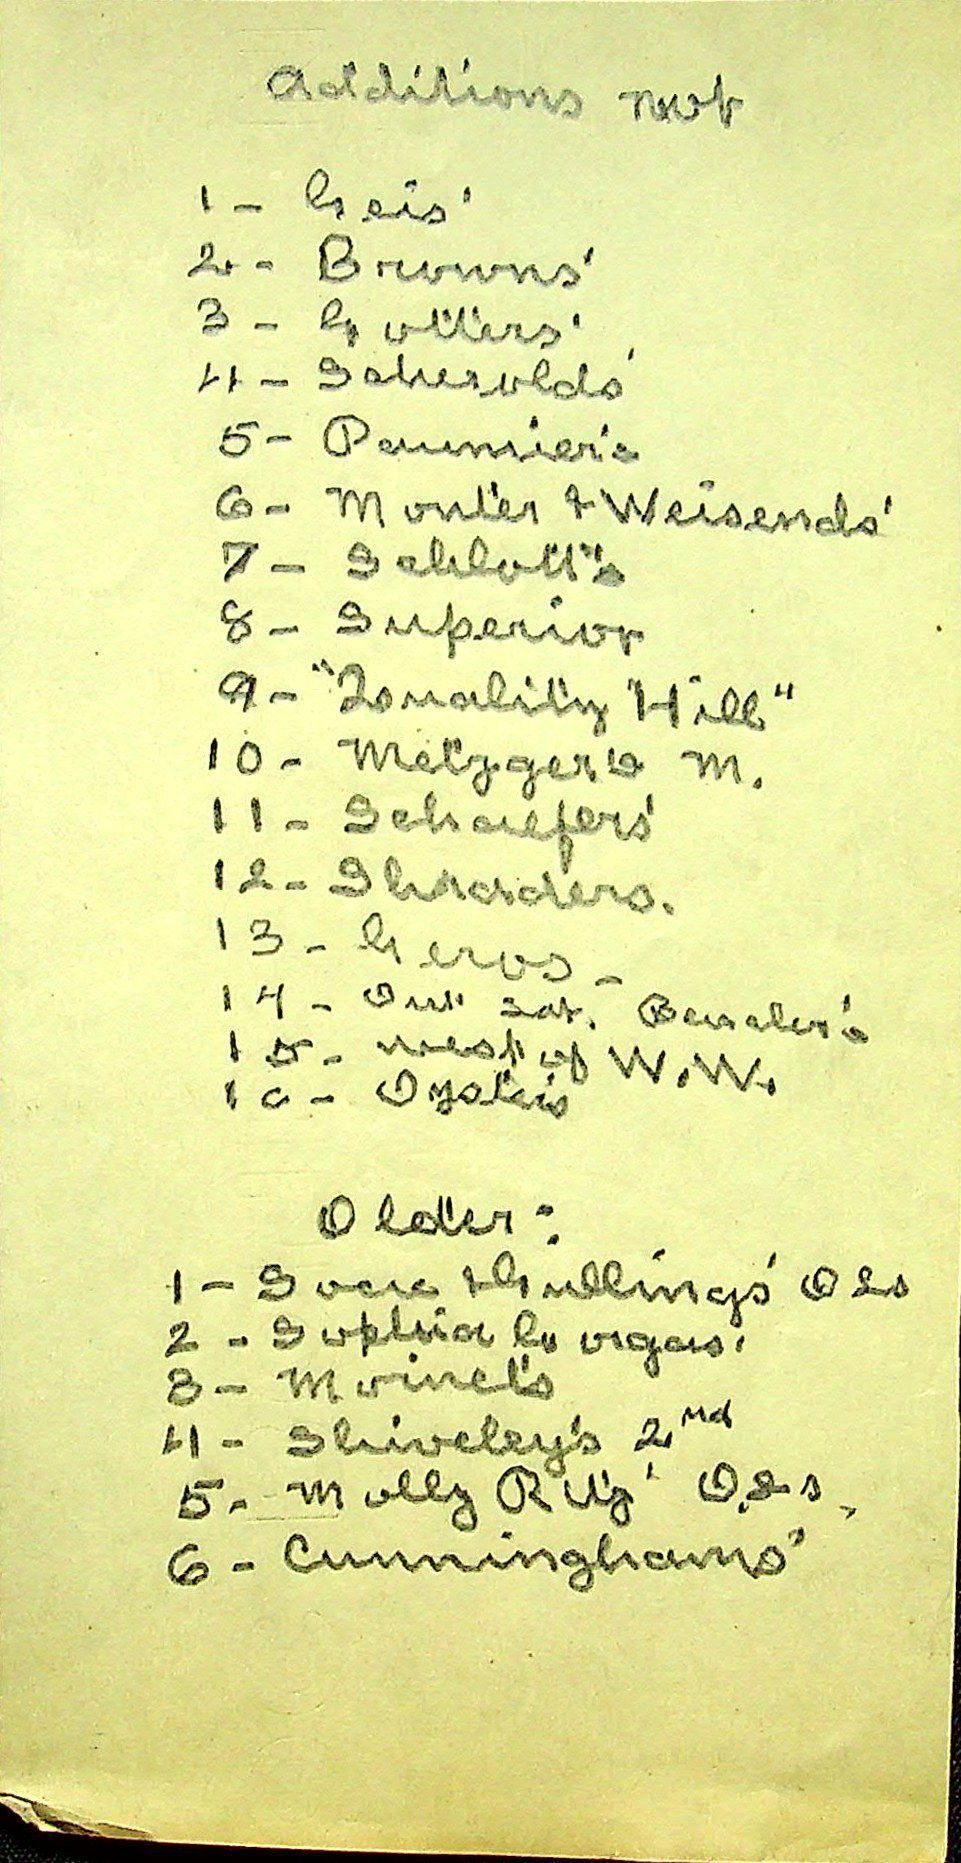 Additions not
1 - Geis'
2 - Browns'
3 - Gutters'
4 - Scherolds'
5 - Paumier's
6 - Monter & Weisends'
7 - Schlott's
8 - Superior
9 - "Quality Hill"
10 - Metzger's M.
11 - Schaefers'
12 - Shraders.
13 - Geros -
14 - Out Bender's
15 - west of W. W.
16 - Oyster's
Older:
1 - & Gullings'
2 - Sophia Gorgas.
3 - Moinet's
4 - Shiveley's 2nd
5 - Molly Ritz'
6 - Cunninghams'